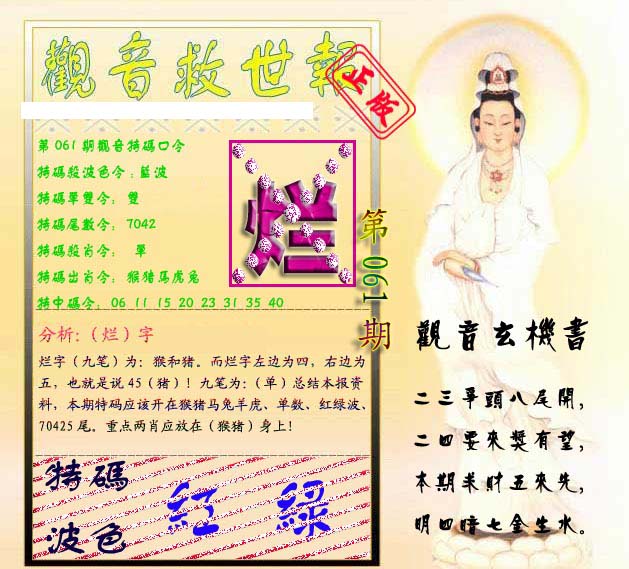 觀音救世報
正版
第061期觀音特碼口令
特碼殺波色令:藍波
特碼單雙令: 雙
特碼尾數令: 7042
特碼殺肖令: 單
特碼出肖令: 猴豬馬虎兔
特中碼令: 06 11 15 20 23 31 35 40
烂
第061期
分析:（烂）字
烂字（九笔）为: 猴和猪。而烂字左边为四，右边为
五，也就是说45（猪）！九笔为:（单）总结本报资
料，本期特码应该开在猴猪马兔羊虎、单数、红绿波、
70425尾。重点两肖应放在（猴猪）身上！
特碼
波色
紅 綠
觀音玄機書
二三爭頭八尾開，
二四要來獎有望，
本期求財五來先，
明四暗七金生水。